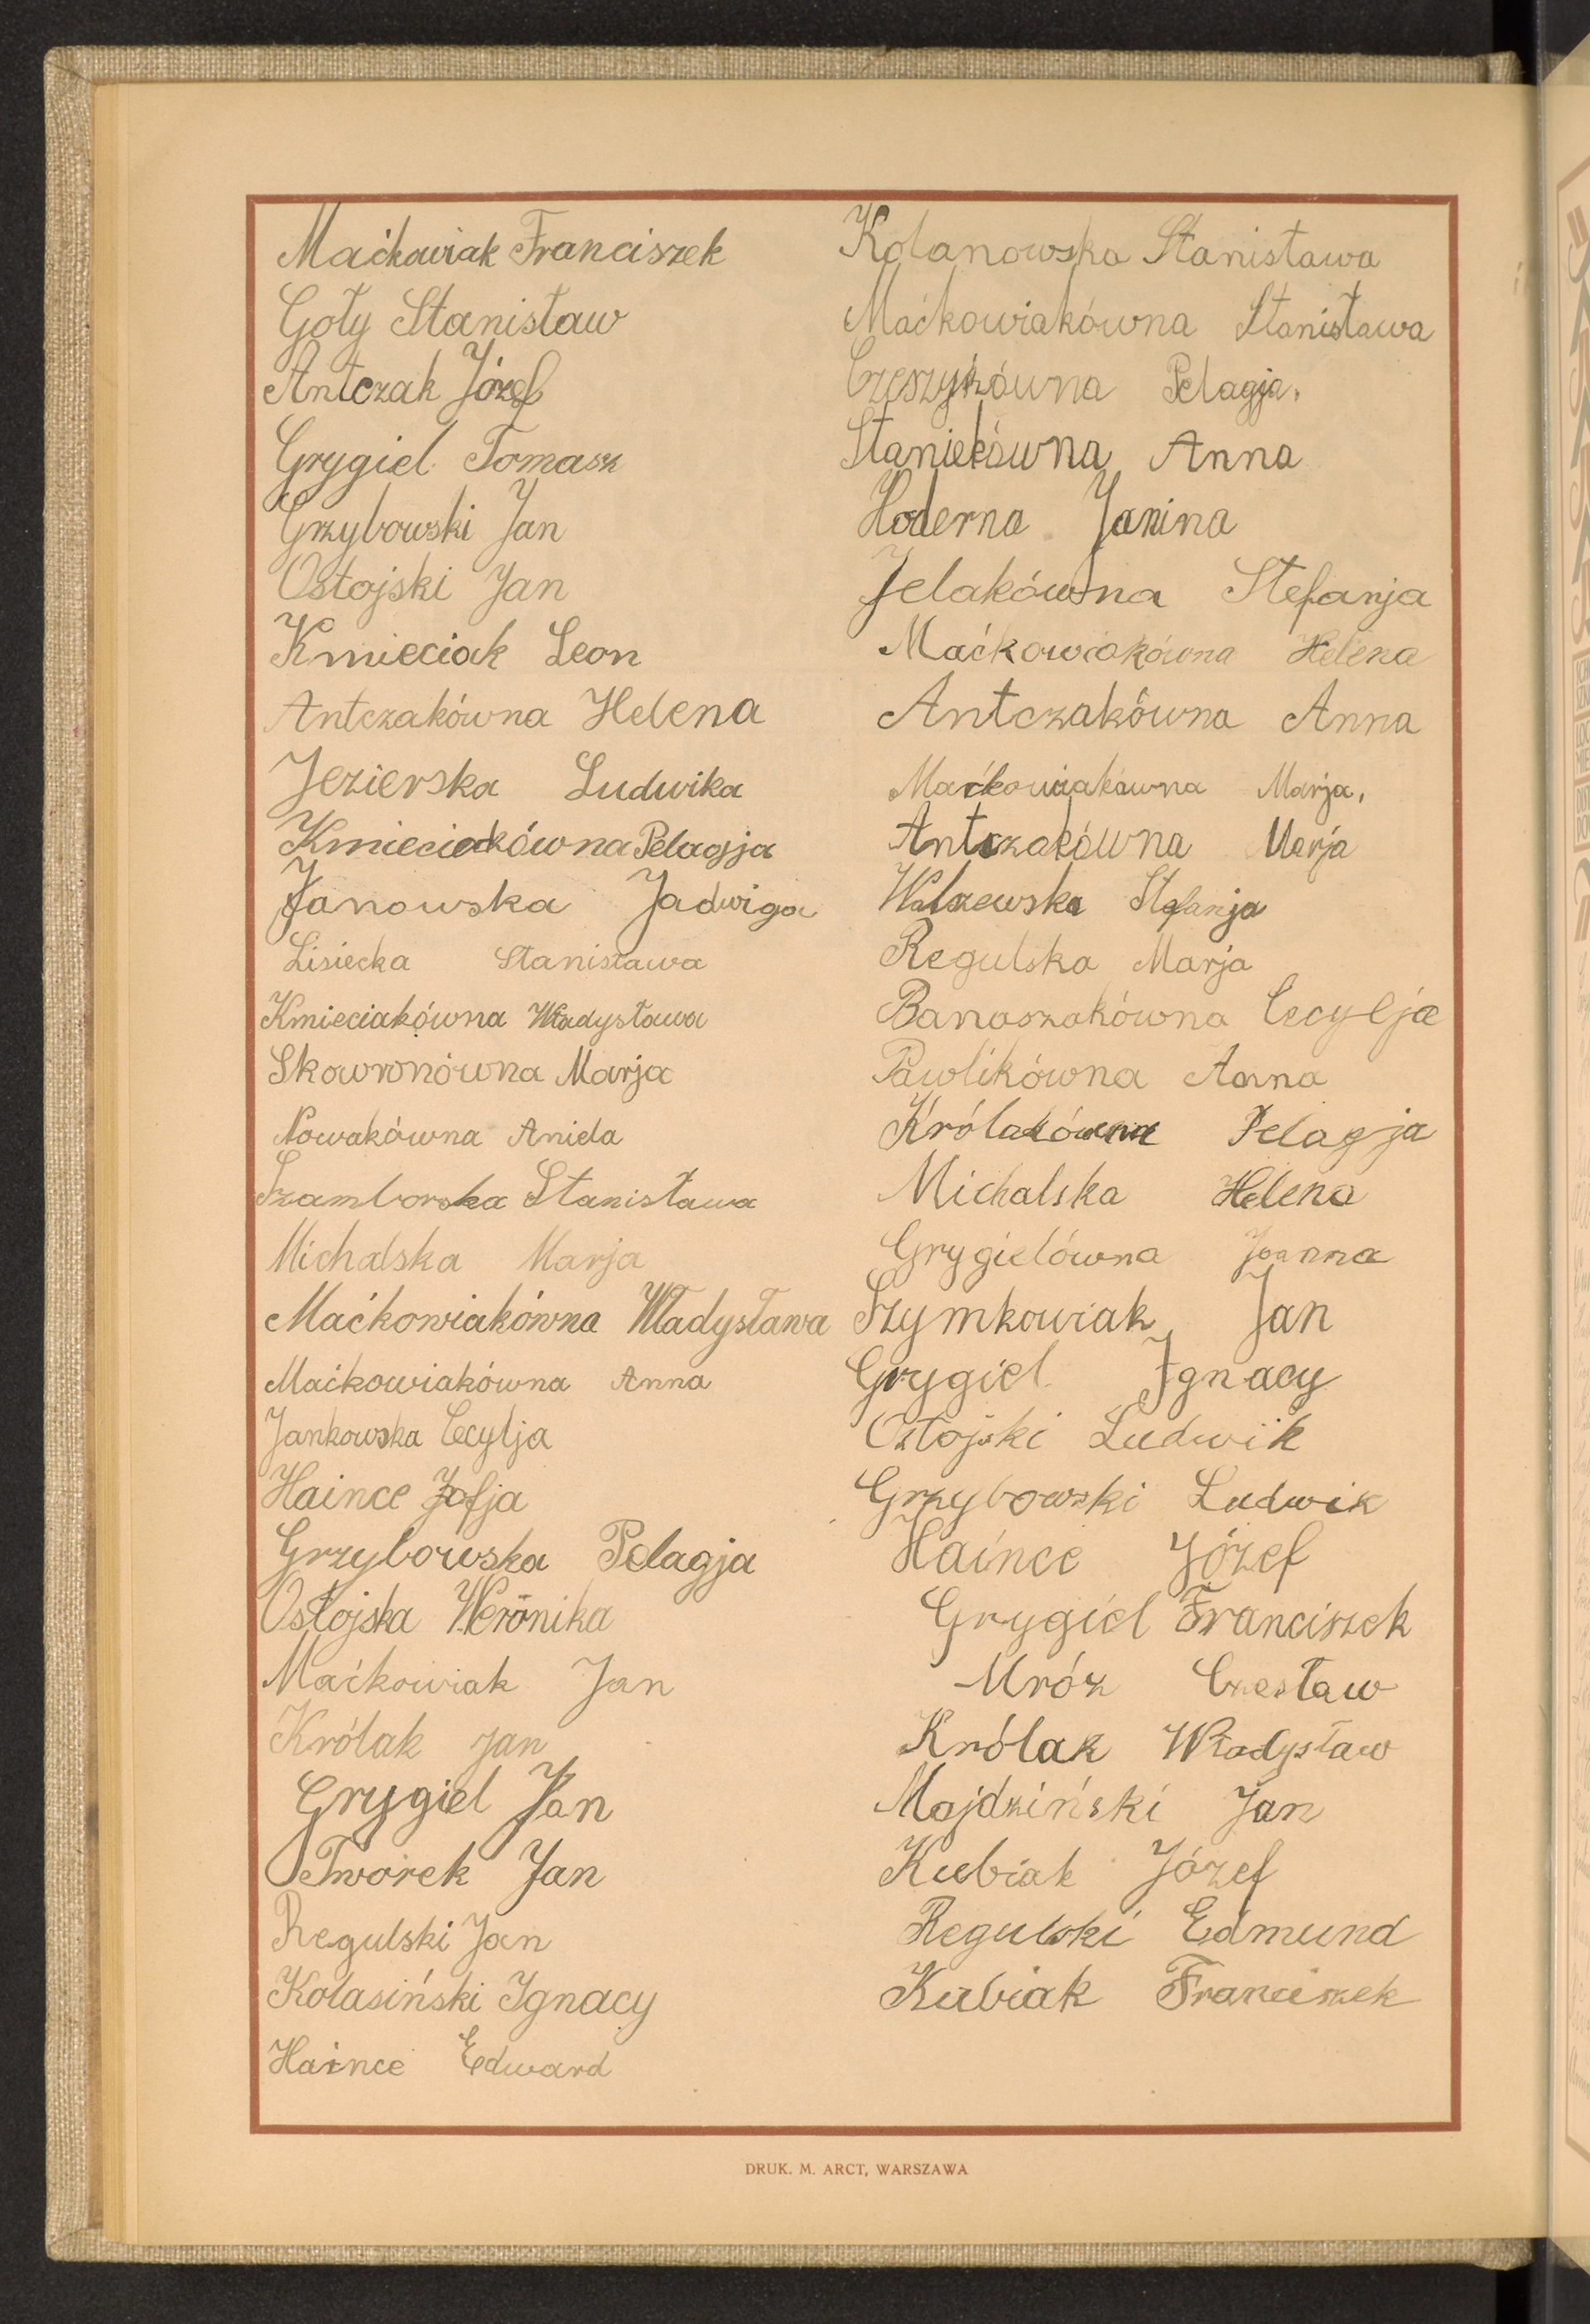 Maćkowiak Franciszek
Goły Stanisław
Antczak Józef
Grygiel Tomasz
Grzybowski Jan
Ostojski Jan
Kmieciak Leon
Antczakówna Helena
Jezierska Ludwika
Kmieciakówna Pelagja
Janowska Jadwiga
Lisiecka Stanisława
Kmieciakówna Władysława
Skowronówna Marja
Nowakówna Aniela
Szamborska Stanisława
Michalska Marja
Maćkowiakówna Władysława
Maćkowiakówna Anna
Jankowska Cecylja
Haince Zofja
Grzybowska Pelagja
Ostojska Weronika
Maćkowiak Jan
Królak Jan
Grygiel Jan
Tworek Jan
Regulski Jan
Kolasiński Ignacy
Haince Edward
Kolanowska Stanisława
Maćkowiakówna Stanisława
Czeszykówna Pelagja.
Staniekówna Anna
Hoderna Janina
Jelakówna Stefanja
Maćkowiakówna Helena
Antczakówna Anna
Maćkowiakówna Marja,
Antczakówna Marja
Walszewska Stefanja
Regulska Marja
Banaszakówna Cecylja
Pawlikówna Anna
Królakówna Pelagja
Michalska Helena
Grygielówna Joanna
Szymkowiak Jan
Grygiel Ignacy
Ostojski Ludwik
Grzybowski Ludwik
Haince Józef
Grygiel Franciszek
Mróz Czesław
Królak Władysław
Majdziński Jan
Kubiak Józef
Regulski Edmund
Kubiak Franciszek
DRUK. M. ARCT, WARSZAWA